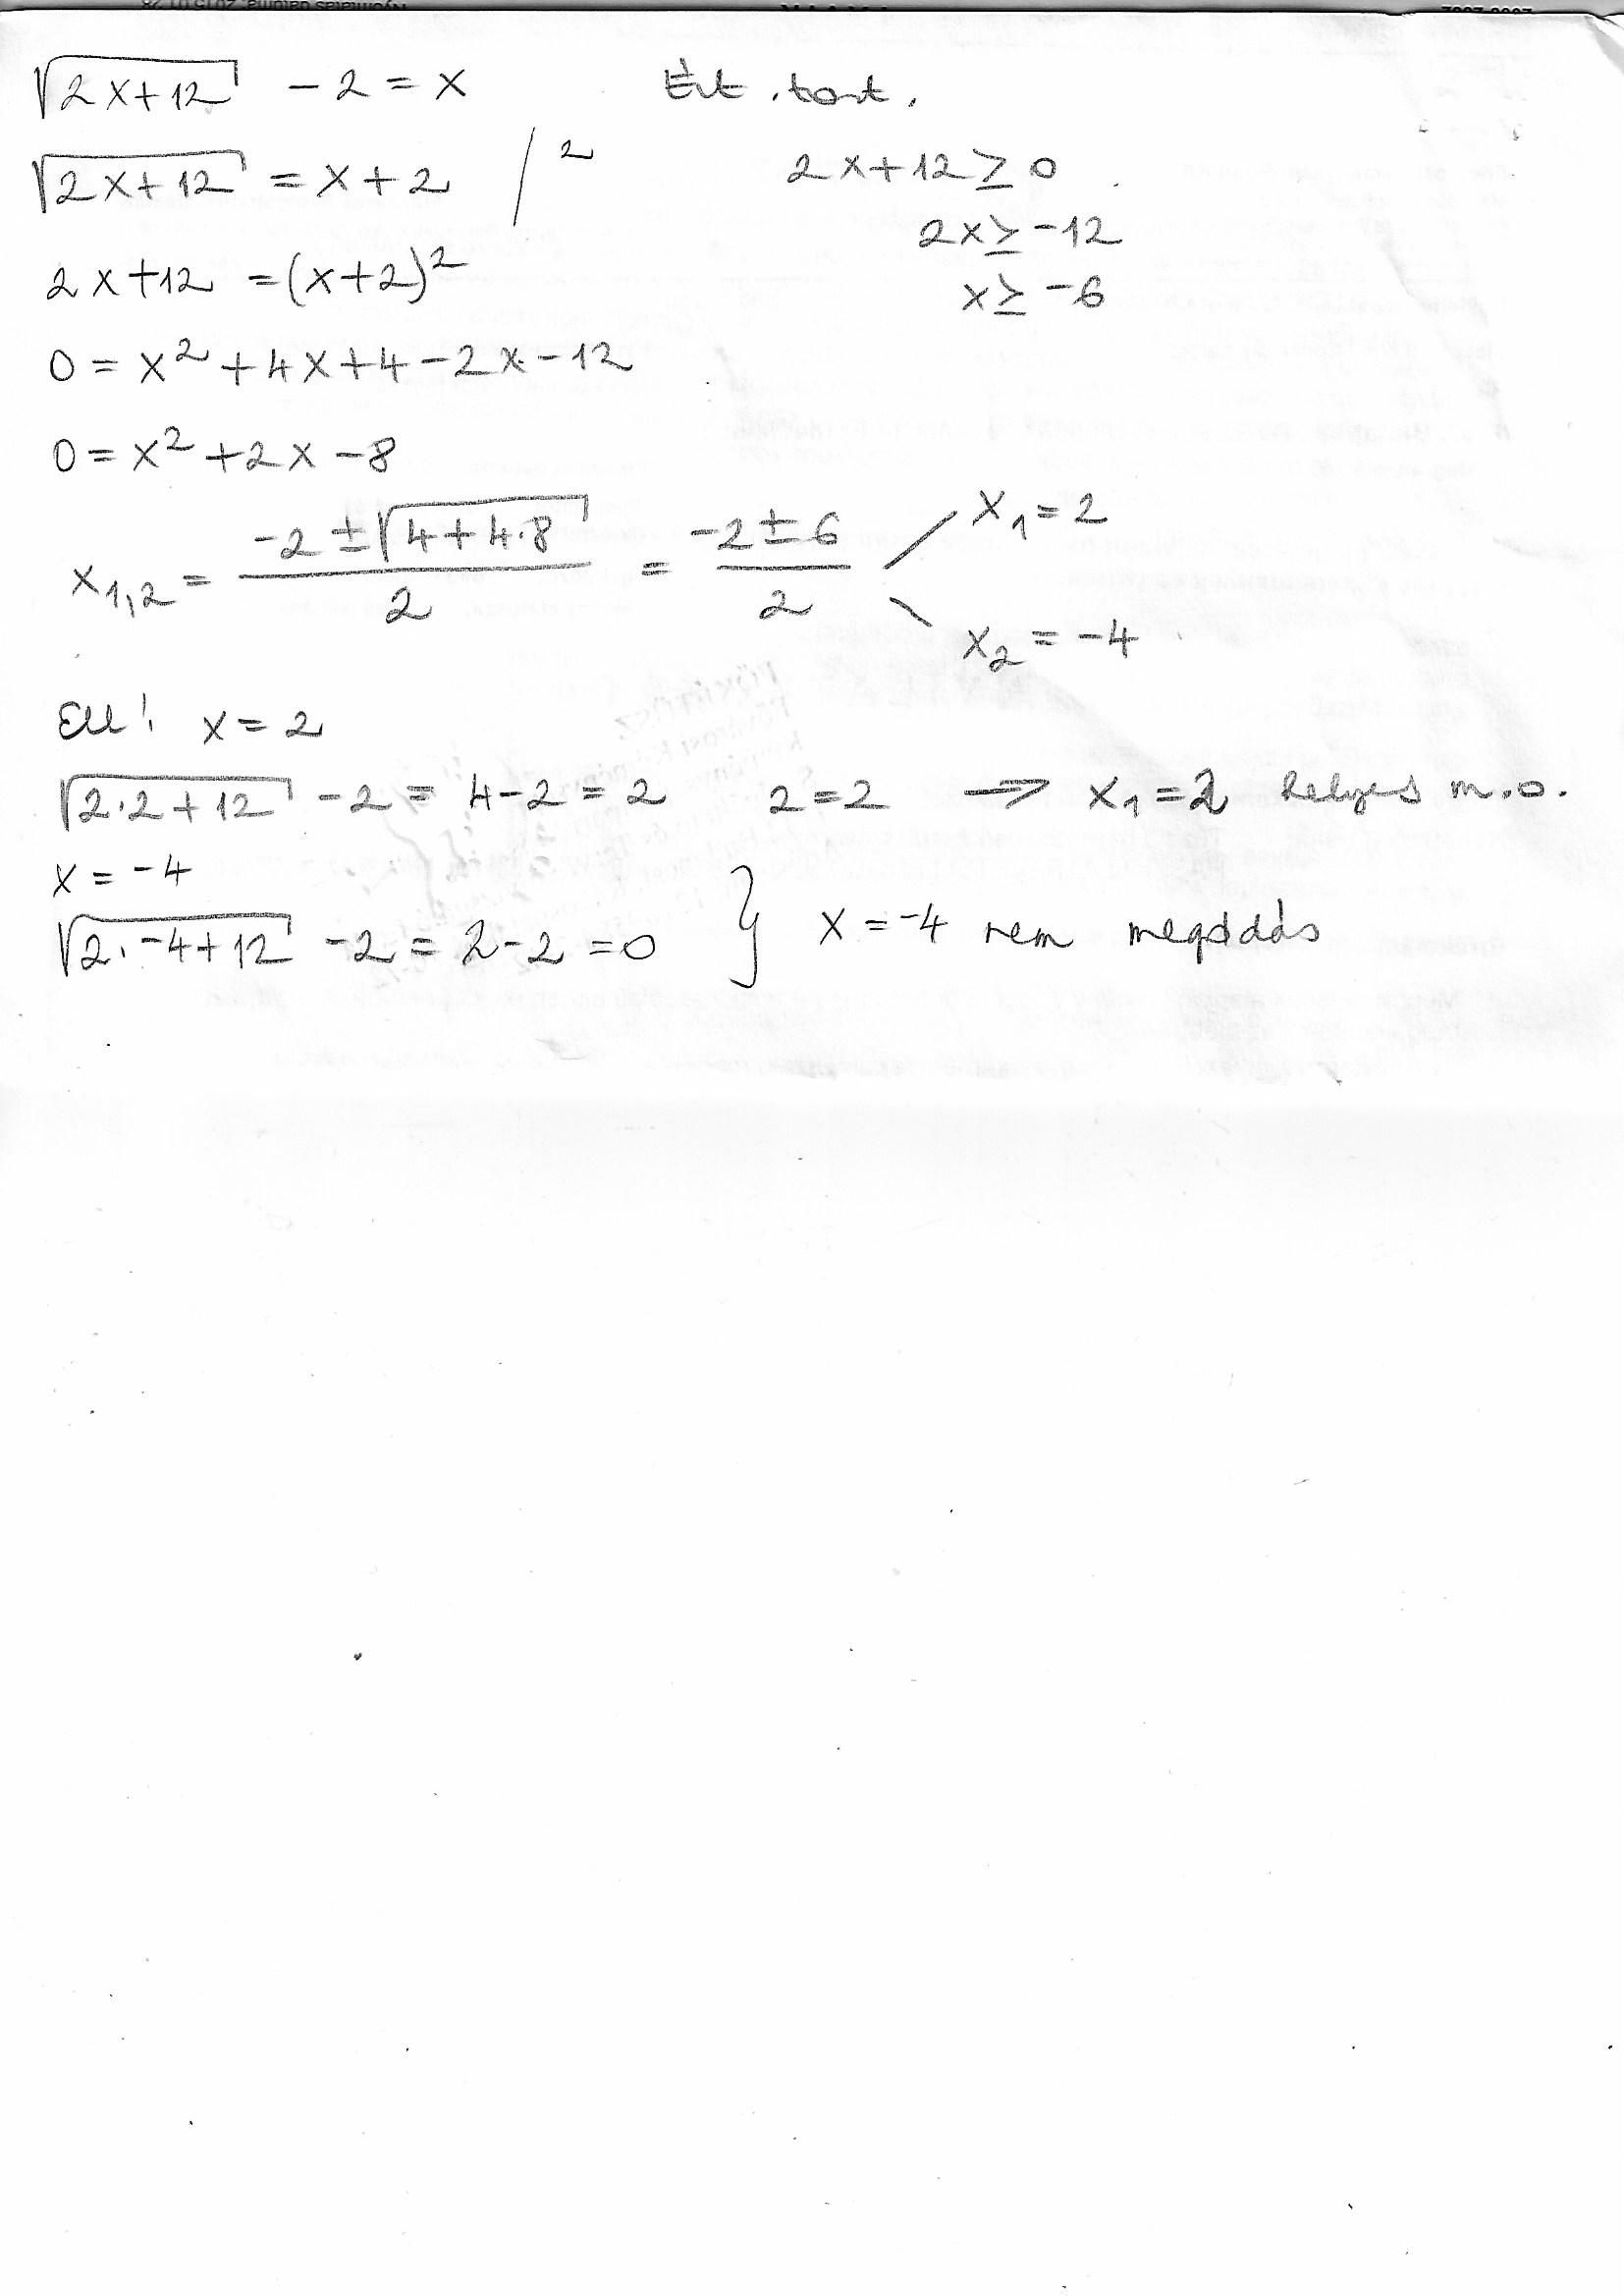 √(2x+12) - 2 = x Ért. tart.
√(2x+12) = x+2 /²
2x+12 ≥ 0
2x+12 = (x+2)²
2x ≥ -12
x ≥ -6
0 = x² + 4x + 4 - 2x - 12
0 = x² + 2x - 8
x₁,₂ = (-2 ± √(4+4·8))/2 = (-2 ± 6)/2
x₁ = 2
x₂ = -4
Ell! x = 2
√(2·2+12) - 2 = 4-2 = 2 2=2 → x₁=2 helyes m.o.
x = -4
√(2·-4+12) - 2 = 2-2 = 0 } x = -4 nem megoldás